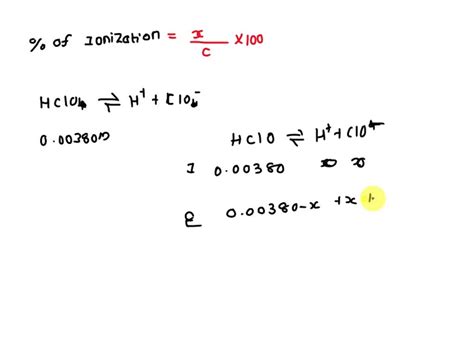 % of Ionization = x/c × 100
HClO4 ⇌ H+ + ClO4-
0.00380M
HClO ⇌ H+ + ClO-
I 0.00380
E 0.00380-x +x